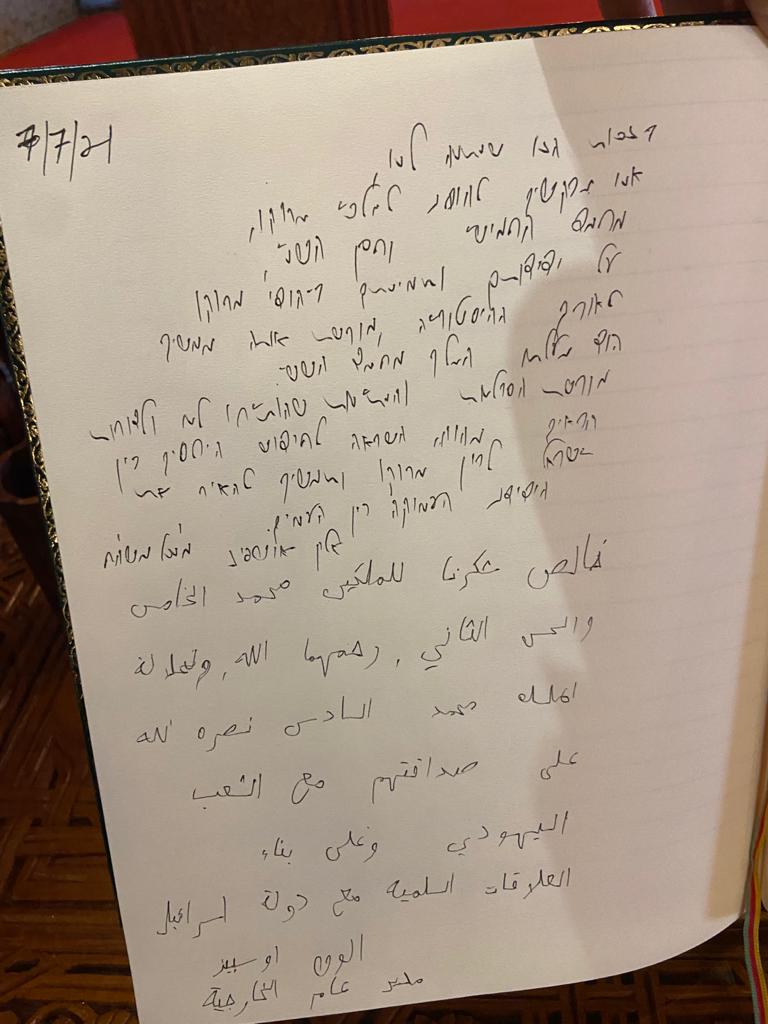 7/7/21
אנו מבקשים להודות למלכי מרוקו,
מחמד החמישי וחסן השני,
על ידידותם ותמיכתם ביהודי מרוקו
לאורך ההיסטוריה, מורשת אותה ממשיך
הוד מעלתו המלך מחמד השישי
מורשת הסובלנות
השראה לחיבור היחסים בין
ישראל לבין מרוקו וימשיך להאיר את
הידידות העמוקה בין העמים
אלון אושפיז מנכ"ל משה"ח
خالص شكرنا للملكين محمد الخامس
والحسن الثاني, رحمهما الله, ولجلالة
الملك محمد السادس نصره الله
على صداقتهم مع الشعب
اليهودي وعلى بناء
العلاقات السلمية مع دولة اسرائيل
الون اوشبيز
مدير عام الخارجية